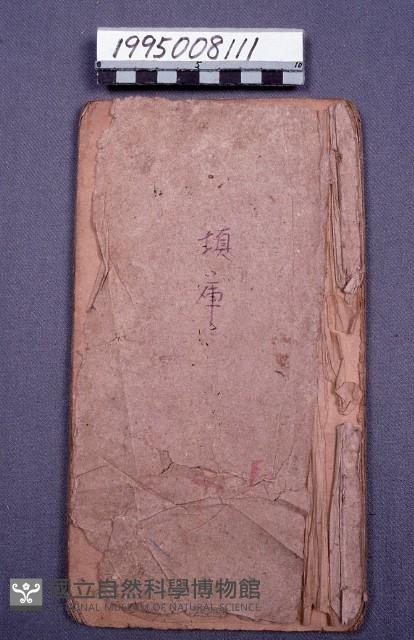 1995008111
0 5 10
填
庫
國立自然科學博物館
NATIONAL MUSEUM OF NATURAL SCIENCE